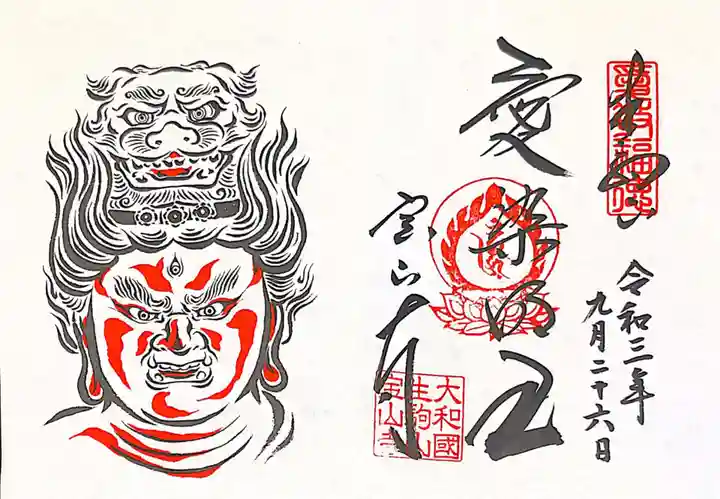 奉拝
令和三年
九月二十六日
愛染明王
宝山寺
大和國
生駒山
宝山寺